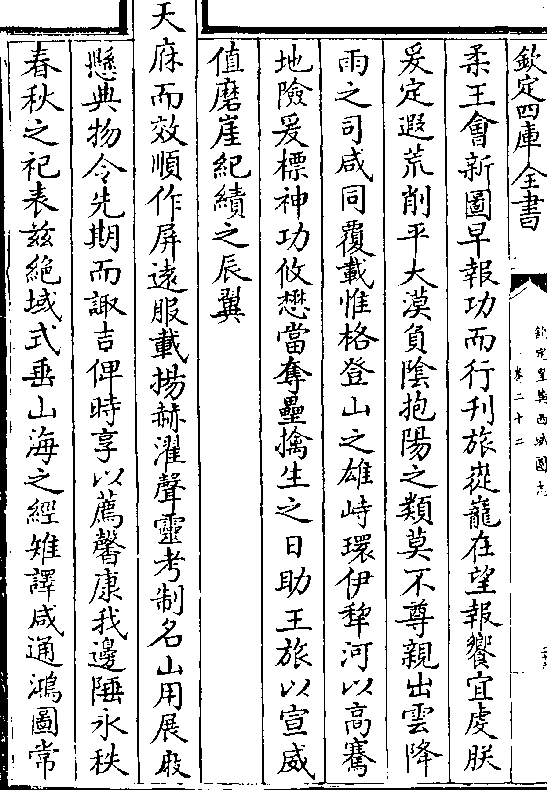 欽定四庫全書
欽定皇輿西域圖志
卷二十二
柔王會新圖早報功而行刋旅巃在望報饗宜虔朕
爰定遐荒削平大漠負陰抱陽之類莫不尊親出雲降
雨之司咸同覆載惟格登山之雄峙環伊犂河以高騫
地險爰標神功攸懋當奪壘擒生之日助王旅以宣威
值磨崖紀績之辰翼
天庥而效順作屏遠服載揚赫濯聲靈考制名山用展㕑
懸典物令先期而諏吉俾時享以薦馨康我邊陲永秩
春秋之祀表兹絶域式垂山海之經雉譯咸通鴻圖常